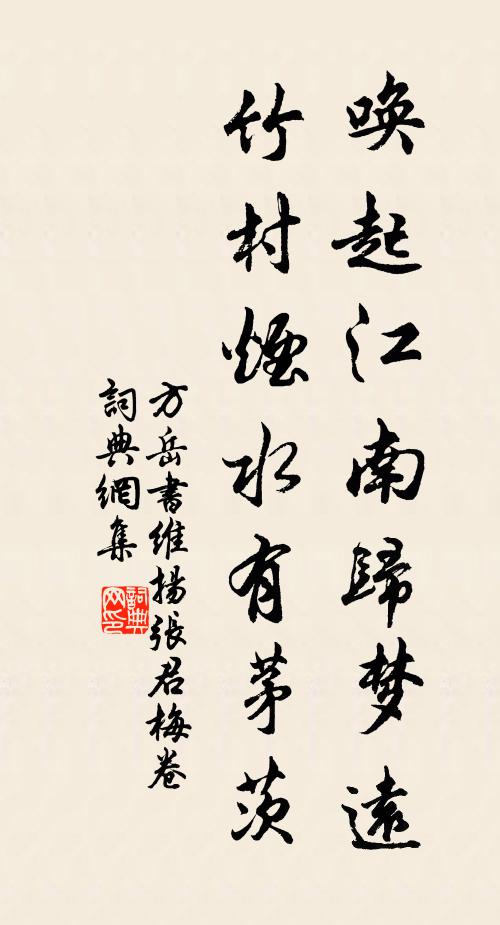 喚起江南歸梦遠
竹村煙水有茅茨
方岳書維揚張君梅卷
詞典網集
詞典
网印